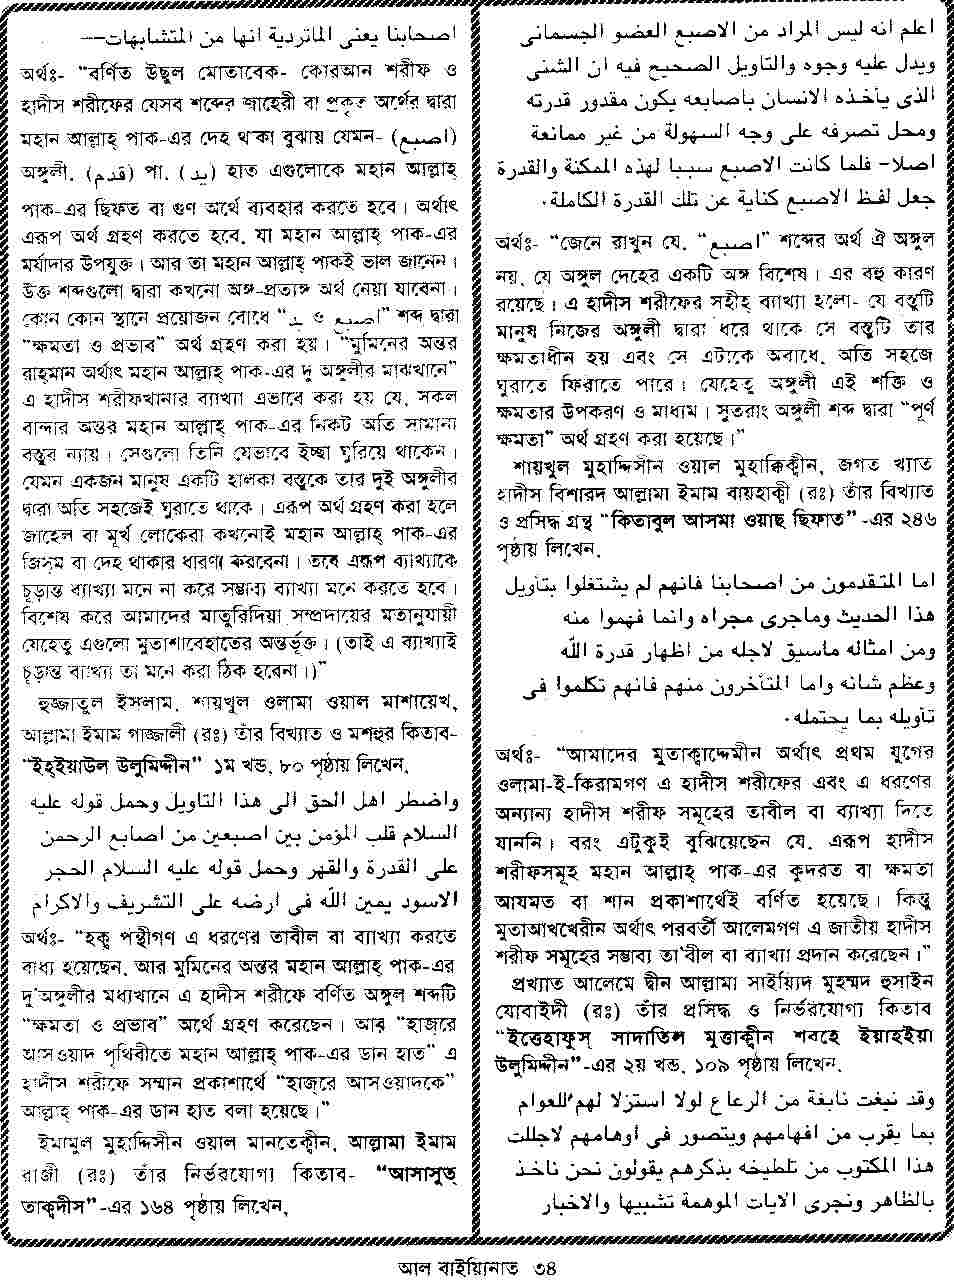 اصحابنا يعنى الماتردية انها من المتشابهات—
অর্থঃ- “বর্ণিত উছুল মোতাবেক- কোরআন শরীফ ও
হাদীস শরীফের যেসব শব্দের জাহেরী বা প্রকৃত অর্থের দ্বারা
মহান আল্লাহ্ পাক-এর দেহ থাকা বুঝায় যেমন- (اصبع)
অঙ্গুলী, (قدم) পা, (يد) হাত এগুলোকে মহান আল্লাহ্
পাক-এর ছিফত বা গুণ অর্থে ব্যবহার করতে হবে। অর্থাৎ
এরূপ অর্থ গ্রহণ করতে হবে, যা মহান আল্লাহ্ পাক-এর
মর্যাদার উপযুক্ত। আর তা মহান আল্লাহ্ পাকই ভাল জানেন।
উক্ত শব্দগুলো দ্বারা কখনো অঙ্গ-প্রত্যঙ্গ অর্থ নেয়া যাবেনা।
কোন কোন স্থানে প্রয়োজন বোধে “يد ও اصبع” শব্দ দ্বারা
“ক্ষমতা ও প্রভাব” অর্থ গ্রহণ করা হয়। “মুমিনের অন্তর
রাহমান অর্থাৎ মহান আল্লাহ্ পাক-এর দু অঙ্গুলীর মাঝখানে”
এ হাদীস শরীফখানার ব্যাখ্যা এভাবে করা হয় যে, সকল
বান্দার অন্তর মহান আল্লাহ্ পাক-এর নিকট অতি সামান্য
বস্তুর ন্যায়। সেগুলো তিনি যেভাবে ইচ্ছা ঘুরিয়ে থাকেন।
যেমন একজন মানুষ একটি হালকা বস্তুকে তার দুই অঙ্গুলীর
দ্বারা অতি সহজেই ঘুরাতে থাকে। এরূপ অর্থ গ্রহণ করা হলে
জাহেল বা মূর্খ লোকেরা কখনোই মহান আল্লাহ্ পাক-এর
জিসম বা দেহ থাকার ধারণা করবেনা। তবে এরূপ ব্যাখ্যাকে
চূড়ান্ত ব্যাখ্যা মনে না করে সম্ভাব্য ব্যাখ্যা মনে করতে হবে।
বিশেষ করে আমাদের মাতুরিদিয়া সম্প্রদায়ের মতানুযায়ী
যেহেতু এগুলো মুতাশাবেহাতের অন্তর্ভূক্ত। (তাই এ ব্যাখ্যাই
চূড়ান্ত ব্যাখ্যা তা মনে করা ঠিক হবেনা।)”
হুজ্জাতুল ইসলাম, শায়খুল ওলামা ওয়াল মাশায়েখ,
আল্লামা ইমাম গাজ্জালী (রঃ) তাঁর বিখ্যাত ও মশহুর কিতাব-
“ইহ্ইয়াউল উলুমিদ্দীন” ১ম খন্ড, ৮০ পৃষ্ঠায় লিখেন,
واضطر اهل الحق الى هذا التاويل وحمل قوله عليه
السلام قلب المؤمن بين اصبعين من اصابع الرحمن
على القدرة والقهر وحمل قوله عليه السلام الحجر
الاسود يمين الله فى ارضه على التشريف والاكرام
অর্থঃ- “হক্ব পন্থীগণ এ ধরণের তাবীল বা ব্যাখ্যা করতে
বাধ্য হয়েছেন, আর মুমিনের অন্তর মহান আল্লাহ্ পাক-এর
দু’অঙ্গুলীর মধ্যখানে এ হাদীস শরীফে বর্ণিত অঙ্গুল শব্দটি
“ক্ষমতা ও প্রভাব” অর্থে গ্রহণ করেছেন। আর “হাজরে
আসওয়াদ পৃথিবীতে মহান আল্লাহ্ পাক-এর ডান হাত” এ
হাদীস শরীফে সম্মান প্রকাশার্থে “হাজরে আসওয়াদকে”
আল্লাহ্ পাক-এর ডান হাত বলা হয়েছে।”
ইমামুল মুহাদ্দিসীন ওয়াল মানতেক্বীন, আল্লামা ইমাম
রাজী (রঃ) তাঁর নির্ভরযোগ্য কিতাব- “আসাসুত্
তাক্বদীস”-এর ১৬৪ পৃষ্ঠায় লিখেন,
اعلم انه ليس المراد من الاصبع العضو الجسمانى
ويدل عليه وجوه والتاويل الصحيح فيه ان الشئى
الذى يأخذه الانسان باصابعه يكون مقدور قدرته
ومحل تصرفه على وجه السهولة من غير ممانعة
اصلا- فلما كانت الاصبع سببا لهذه المكنة والقدرة
جعل لفظ الاصبع كناية عن تلك القدرة الكاملة.
অর্থঃ- “জেনে রাখুন যে, “اصبع” শব্দের অর্থ ঐ অঙ্গুল
নয়, যে অঙ্গুল দেহের একটি অঙ্গ বিশেষ। এর বহু কারণ
রয়েছে। এ হাদীস শরীফের সহীহ্ ব্যাখ্যা হলো- যে বস্তুটি
মানুষ নিজের অঙ্গুলী দ্বারা ধরে থাকে সে বস্তুটি তার
ক্ষমতাধীন হয় এবং সে এটাকে অবাধে, অতি সহজে
ঘুরাতে ফিরাতে পারে। যেহেতু অঙ্গুলী এই শক্তি ও
ক্ষমতার উপকরণ ও মাধ্যম। সুতরাং অঙ্গুলী শব্দ দ্বারা “পূর্ণ
ক্ষমতা” অর্থ গ্রহণ করা হয়েছে।”
শায়খুল মুহাদ্দিসীন ওয়াল মুহাক্কিক্বীন, জগত খ্যাত
হাদীস বিশারদ আল্লামা ইমাম বায়হাক্বী (রঃ) তাঁর বিখ্যাত
ও প্রসিদ্ধ গ্রন্থ “কিতাবুল আসমা ওয়াছ ছিফাত”-এর ২৪৬
পৃষ্ঠায় লিখেন,
اما المتقدمون من اصحابنا فانهم لم يشتغلوا بتاويل
هذا الحديث وماجرى مجراه وانما فهموا منه
ومن امثاله ماسيق لاجله من اظهار قدرة الله
وعظم شانه واما المتأخرون منهم فانهم تكلموا فى
تاويله بما يحتمله.
অর্থঃ- “আমাদের মুতাক্বাদ্দেমীন অর্থাৎ প্রথম যুগের
ওলামা-ই-কিরামগণ এ হাদীস শরীফের এবং এ ধরণের
অন্যান্য হাদীস শরীফ সমূহের তাবীল বা ব্যাখ্যা দিতে
যাননি। বরং এটুকুই বুঝিয়েছেন যে, এরূপ হাদীস
শরীফসমূহ মহান আল্লাহ্ পাক-এর কুদরত বা ক্ষমতা
আযমত বা শান প্রকাশার্থেই বর্ণিত হয়েছে। কিন্তু
মুতাআখখেরীন অর্থাৎ পরবর্তী আলেমগণ এ জাতীয় হাদীস
শরীফ সমূহের সম্ভাব্য তা'বীল বা ব্যাখ্যা প্রদান করেছেন।”
প্রখ্যাত আলেমে দ্বীন আল্লামা সাইয়্যিদ মুহম্মদ হুসাইন
যোবাইদী (রঃ) তাঁর প্রসিদ্ধ ও নির্ভরযোগ্য কিতাব
“ইত্তেহাফুস্ সাদাতিল মুত্তাক্বীন শরহে ইয়াহইয়া
উলুমিদ্দীন”-এর ২য় খন্ড, ১০৯ পৃষ্ঠায় লিখেন,
وقد نبغت نابغة من الرعاع لولا استزلا لهم للعوام
بما يقرب من افهامهم ويتصور فى اوهامهم لاجللت
هذا المكتوب من تلطيخه بذكرهم يقولون نحن ناخذ
بالظاهر ونجرى الايات الموهمة تشبيها والاخبار
আল বাইয়্যিনাত ৩৪